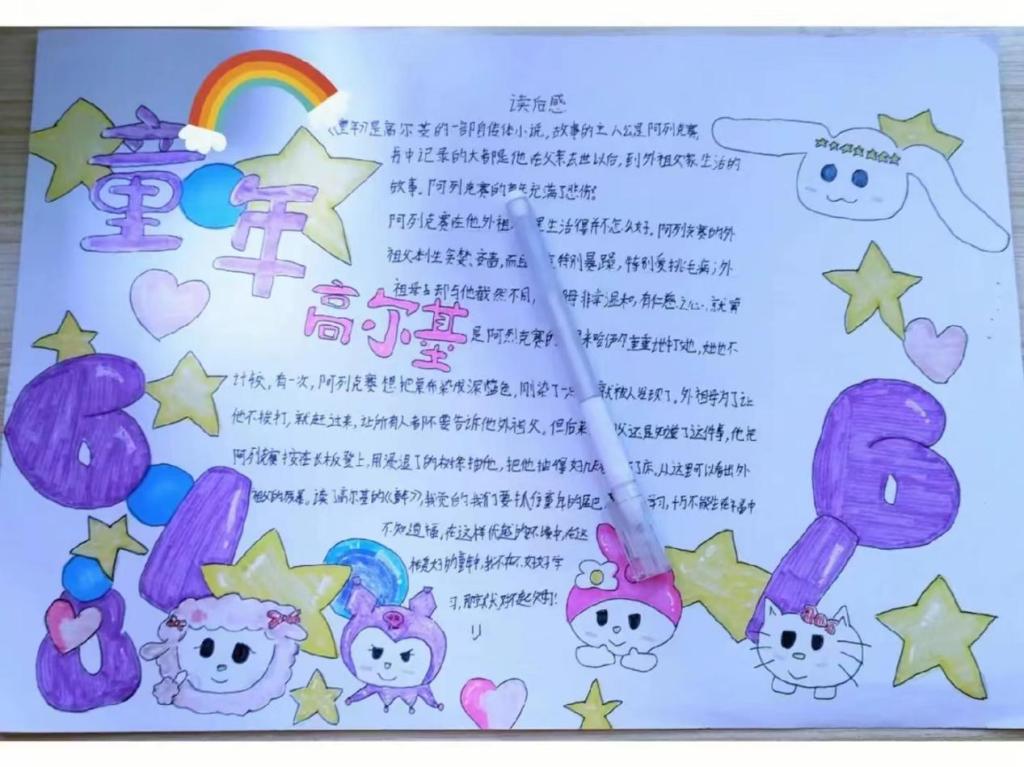 童年
高尔基
读后感
《童年》是高尔基的一部自传体小说，故事的主人公是阿列克赛，
书中记录的大都是他在父亲去世以后，到外祖父家生活的
故事。阿列克赛的童年充满了悲伤。
阿列克赛在他外祖 里生活得并不怎么好。阿列克赛的外
祖父本性贪婪、吝啬，而且 特别暴躁，特别爱挑毛病；外
祖母却与他截然不同， 母非常温和，有仁慈之心。就算
是阿列克赛的 地打她，她也不
计较，有一次，阿列克赛想把桌布染成深蓝色，刚染了 就被人发现了。外祖母为了让
他不挨打，就赶过来，让所有人都不要告诉他外祖父。但后来 父还是知道了这件事，他把
阿列克赛按在长板登上，用浸湿了的树条抽他，把他抽得好几 了床，从这里可以看出外
祖父的 读 高尔基的《童年》，我觉的我们要抓住童年的 学习，千万不能生在福中
不知道福，在这样优越的环境中，在这
样美好的童年，我不好好学
习，那就对不起父母！
6
1
8
6
1